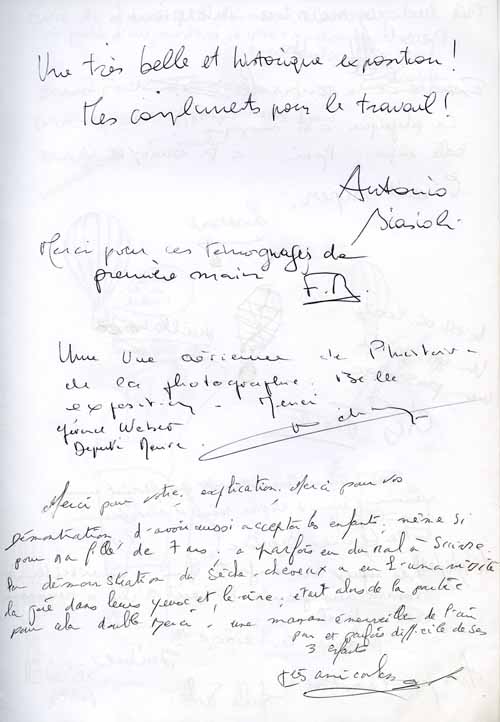 Une très belle et historique exposition!
Mes compliments pour le travail!
Antonio
Merci pour ces témoignages de
première main
F.R.
Une vue aérienne de l'histoire
de la photographie. Belle
exposition. Merci
Gérard Weber
Député Maire.
Merci pour votre explication. Merci pour vos
démonstration, d'avoir aussi accepter les enfants. même si
pour ma fille de 7 ans. a parfois eu du mal à suivre.
La démonstration du Sèche-cheveux a eu l'unanimité
la joie dans leurs yeux et le rire, était alors de la partie
pour cela double merci. une maman émerveillée de
par et parfois difficile de ses
3 enfants